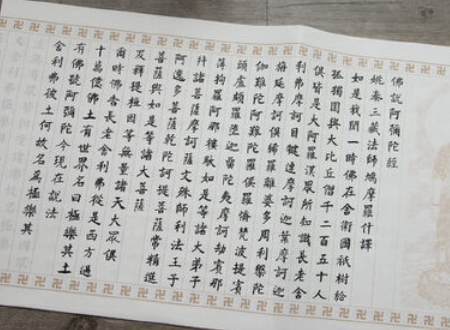 佛說阿彌陀經
姚秦三藏法師鳩摩羅什譯
如是我聞一時佛在舍衛國祇樹給
孤獨園與大比丘僧千二百五十人
俱皆是大阿羅漢眾所知識長老舍
利弗摩訶目犍連摩訶迦葉摩訶迦
旃延摩訶俱絺羅離婆多周利槃陀
伽難陀阿難陀羅侯羅憍梵波提賓
頭盧頗羅墮迦留陀夷摩訶劫賓那
薄拘羅阿那樓馱如是等諸大弟子
并諸菩薩摩訶薩文殊師利法王子
阿逸多菩薩乾陀訶提菩薩常精進
菩薩與如是等諸大菩薩
及釋提桓因等無量諸天大眾俱
爾時佛告長老舍利弗從是西方過
十萬億佛土有世界名曰極樂其土
有佛號阿彌陀今現在說法
舍利弗彼土何故名為極樂其